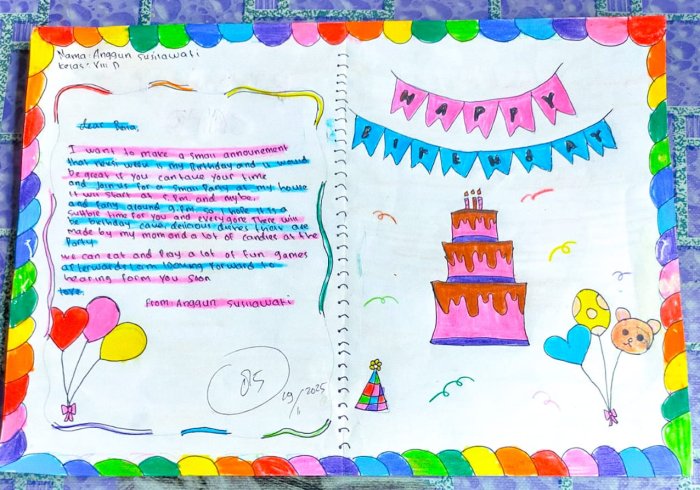 Nama: Anggun Susilawati
Kelas: VIII D
Dear Bena,
I want to make a small announement
that next week is my Birthday and it would
be great if you can have your time
and Join us for a small Party at my house
it will start at 5 P.m. and maybe
and fang around 9.P.m so I hope it is a
suitble time for You and everyone There will
be birthday cake, delicious dishes that are
made by my mom and a lot of candies at the
Party
we can eat and Play a lot of fun games
afterwards I am looking forward to
hearing form you soon
Love.
from: Anggun Susilawati
19/ 2025
HAPPY
BIRTHDAY